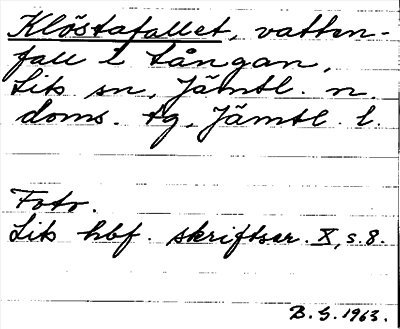 Klöstafallet, vatten-
fall i Långan,
Lits sn, Jämtl. n.
doms. tg, Jämtl. l.
Foto.
Lits hbf. skriftser. X, s. 8.
B. G. 1963.